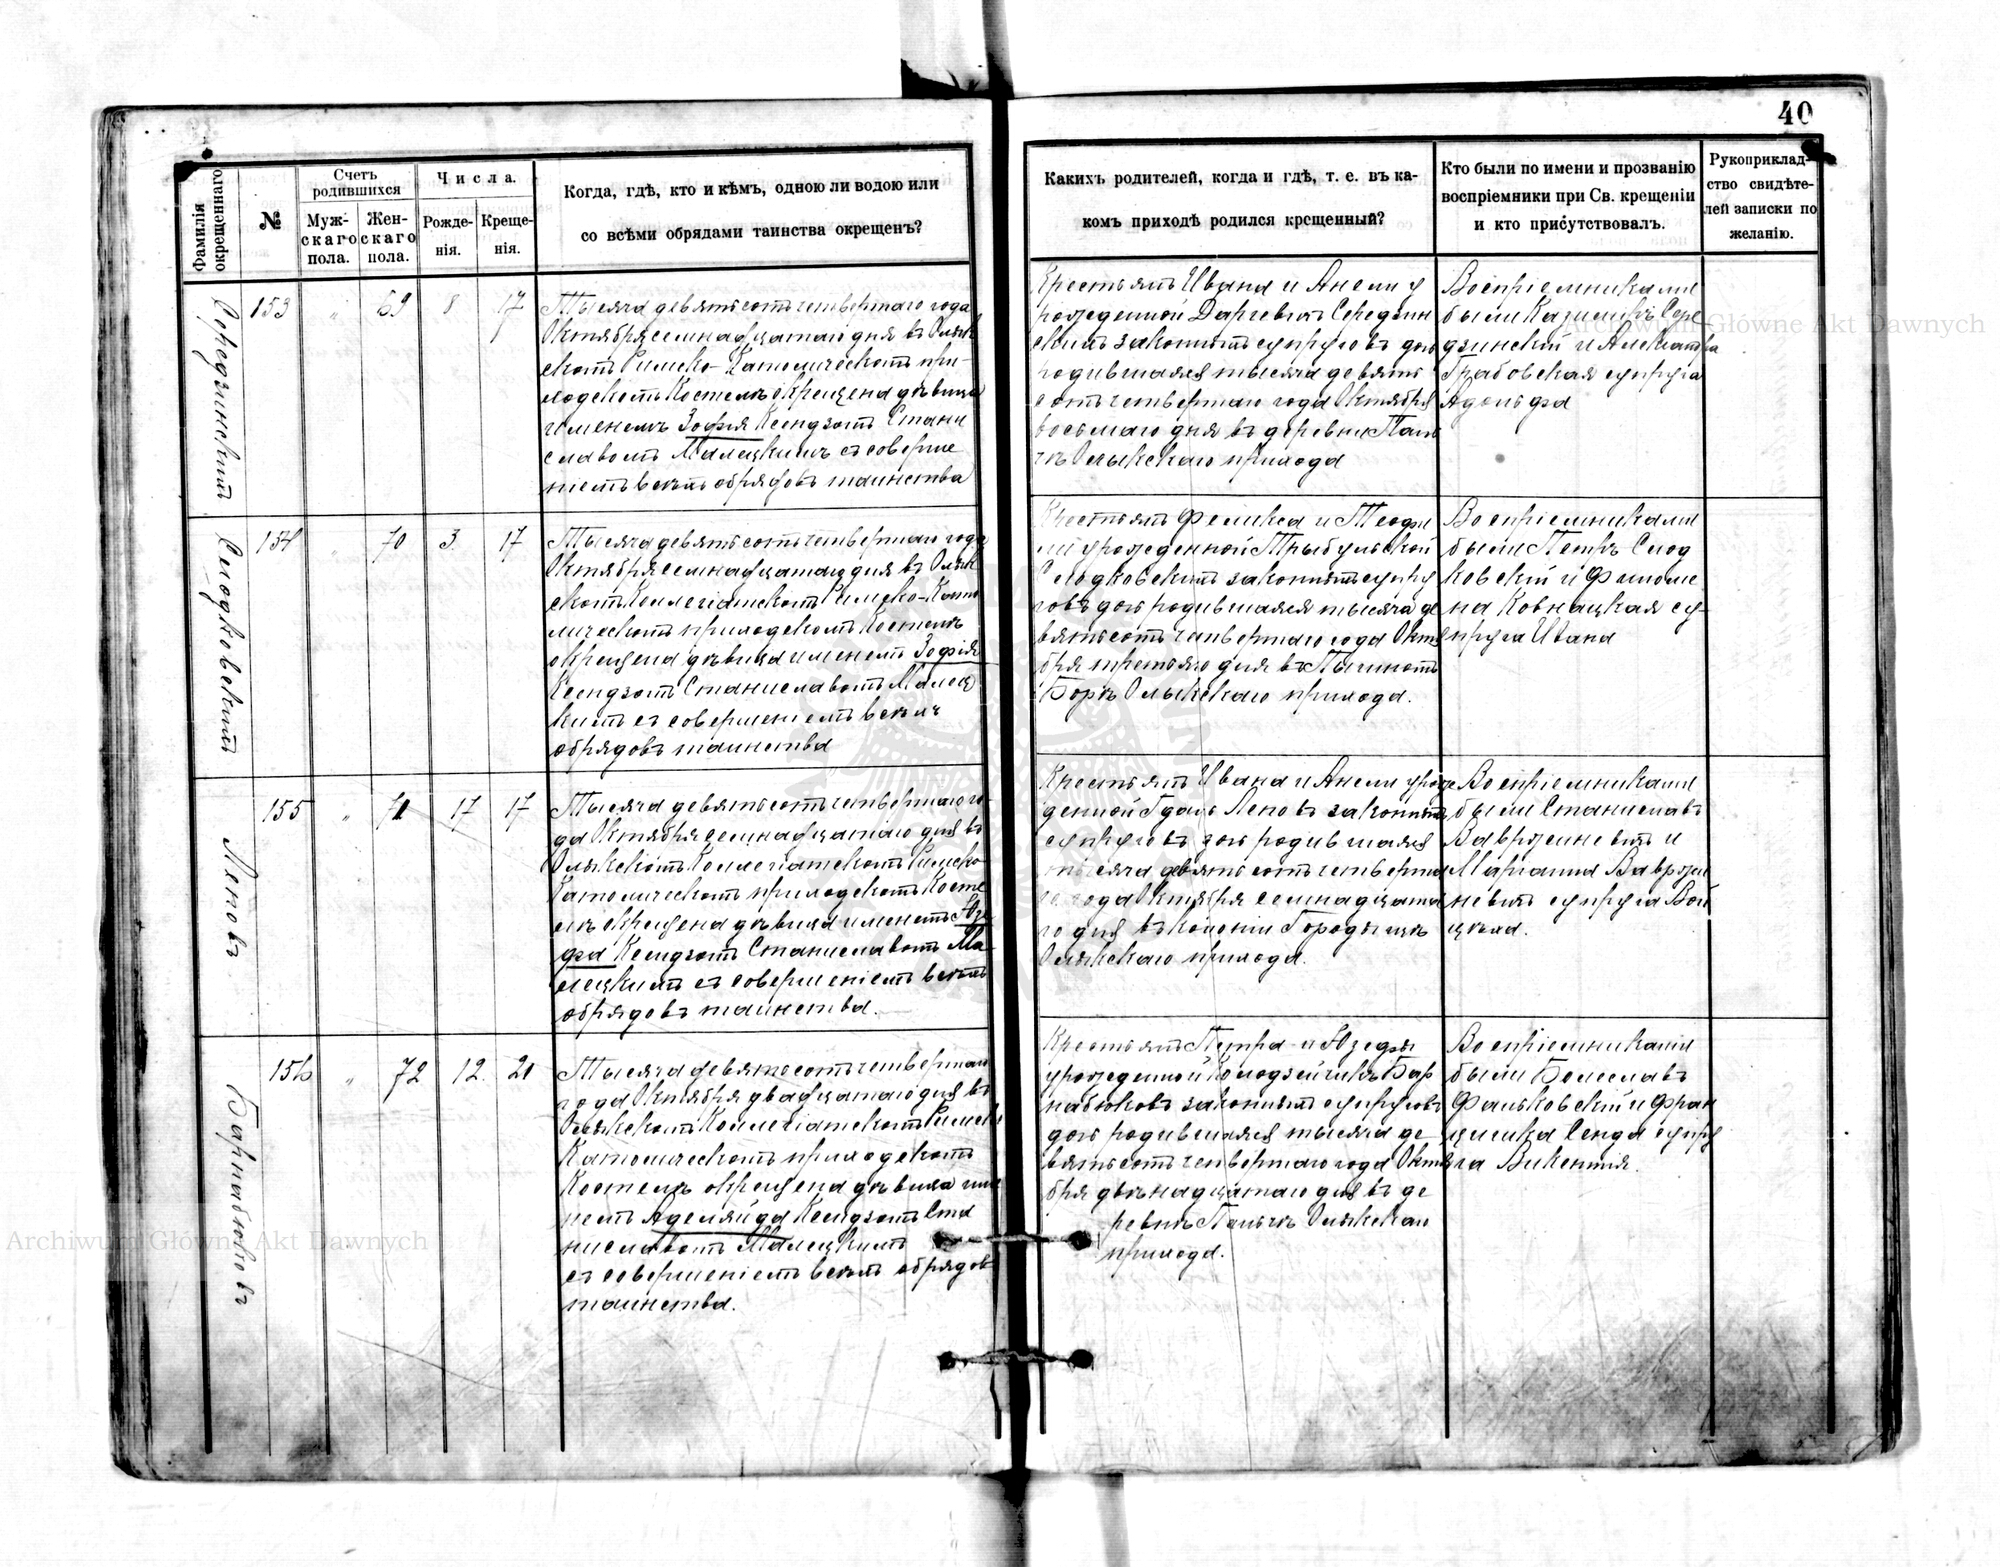 40
Фамилія окрещеннаго.
№
Счетъ родившихся
Мужскаго пола.
Женскаго пола.
Числа.
Рожденія.
Крещенія.
Когда, гдѣ, кто и кѣмъ, одною ли водою или
со всѣми обрядами таинства окрещенъ?
Какихъ родителей, когда и гдѣ, т. е. въ ка-
комъ приходѣ родился крещенный?
Кто были по имени и прозванію
воспріемники при Св. крещеніи
и кто присутствовалъ.
Рукоприклад-
ство свидѣте-
лей записки по
желанію.
153 " 69 8 17
Тысяча девятьсотъ четвертаго года
Октября семнадцатаго дня въ Олык
скомъ Римско-Католическомъ при-
ходскомъ Костелѣ окрещена дѣвица
именемъ Зофія Ксендзомъ Стани
славомъ Малецкимъ съ соверше
ніемъ всѣхъ обрядовъ таинства
Крестьянъ Ивана и Анели у
рожденной
законныхъ супруговъ дочь
родившаяся тысяча девять
сотъ четвертаго года Октября
восьмаго дня въ деревни Паль
чѣ Олыкскаго прихода
Воспріемниками
были Казимиръ Сере
дзинскій и Александра
Грабовская супруга
Адольфа
Archiwum Główne Akt Dawnych
154 " 70 3 17
Тысяча девятьсотъ четвертаго года
Октября семнадцатаго дня въ Олык
скомъ Коллегіатскомъ Римско-Като
лическомъ приходскомъ Костелѣ
окрещена дѣвица именемъ Зофія
Ксендзомъ Станиславомъ Малец
кимъ съ совершеніемъ всѣхъ
обрядовъ таинства
Крестьянъ Феликса и Теофи
ли урожденной Трыбульской
законныхъ супру
говъ дочь родившаяся тысяча де
вятьсотъ четвертаго года Октя
бря третьяго дня въ
Борѣ Олыкскаго прихода.
Воспріемниками
были Петръ Слод
ковскій и Филоме
на Ковнацкая су-
пруга Ивана
Леповъ
155 " 71 17 17
Тысяча девятьсотъ четвертаго го-
да Октября семнадцатаго дня въ
Олыкскомъ Коллегіатскомъ Римско
Католическомъ приходскомъ Косте
лѣ окрещена дѣвица именемъ Юзе
фа Ксендзомъ Станиславомъ Ма-
лецкимъ съ совершеніемъ всѣхъ
обрядовъ таинства.
Крестьянъ Ивана и Анели урож
денной Леповъ законныхъ
супруговъ дочь родившаяся
тысяча девятьсотъ четверта
го года Октября семнадцата
го дня въ колоніи
Олыкскаго прихода.
Воспріемниками
были Станиславъ
и
Маріанна
супруга Вой
цѣха.
Барнабюковъ
156 " 72 12. 20
Тысяча девятьсотъ четвертаго
года Октября двадцатаго дня въ
Олыкскомъ Коллегіатскомъ Римско
Католическомъ приходскомъ
Костелѣ окрещена дѣвица име
немъ Аделяйда Ксендзомъ Ста
ниславомъ Малецкимъ
съ совершеніемъ всѣхъ обрядовъ
таинства.
Крестьянъ Петра и Юзефы
урожденной Бар
набюковъ законныхъ супруговъ
дочь родившаяся тысяча де
вятьсотъ четвертаго года Октя
бря двѣнадцатаго дня въ де
ревнѣ Пальчѣ Олыкскаго
прихода.
Воспріемниками
были Болеславъ
Фальковскій и Фран
цишка супру
га Викентія.
Archiwum Główne Akt Dawnych